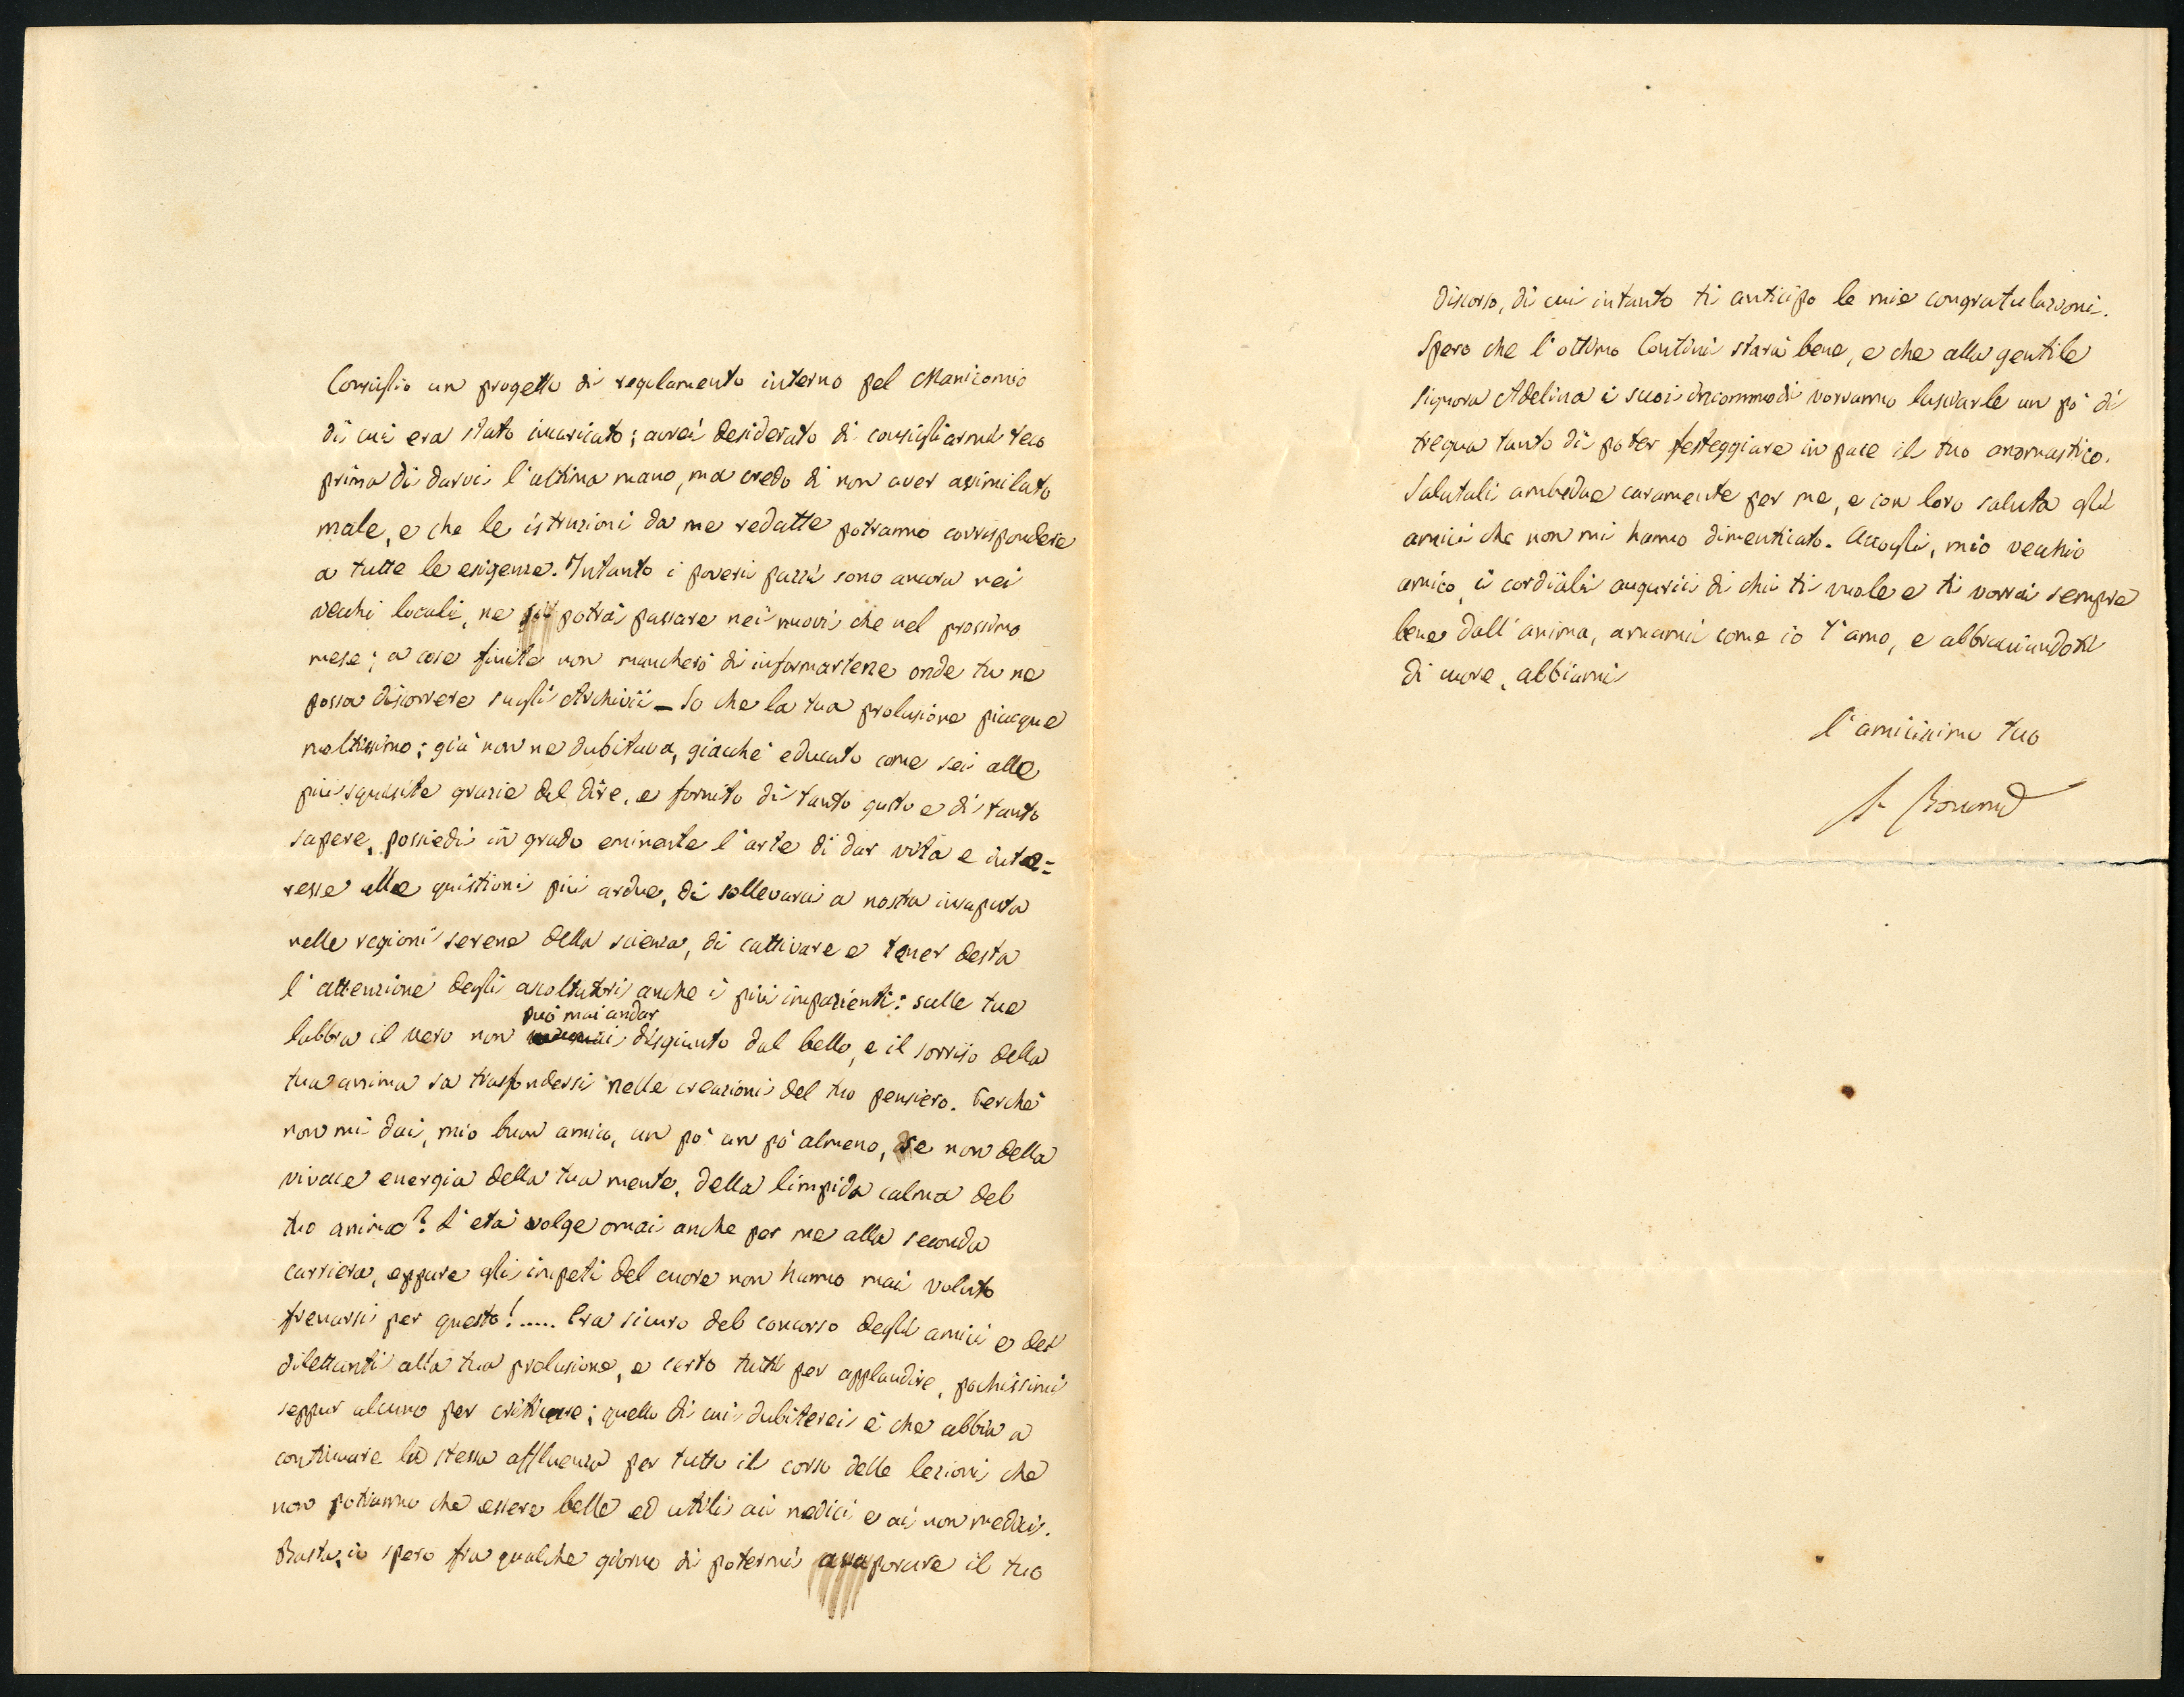 Consiglio un progetto di regolamento interno pel Manicomio
di cui era stato incaricato; avrei desiderato di consigliarmi teco
prima di darvi l'ultima mano, ma credo di non aver assimilato
male, e che le istruzioni da me redatte potranno corrispondere
a tutte le esigenze. Intanto i poveri pazzi sono ancora nei
vecchi locali, ne potrà passare nei nuovi che nel prossimo
mese; a cose finite non mancherò di informartene onde tu ne
possa discorrere sugli Archivii — So che la tua prolusione piacque
moltissimo; già non ne dubitava, giacchè educato come sei alle
più squisite grazie del dire, e fornito di tanto gusto e di tanto
sapere, possiedi in grado eminente l'arte di dar vita e inte=
resse alle quistioni più ardue, di sollevarci a nostra insaputa
nelle regioni serene della scienza, di cattivare e tener desta
l'attenzione degli ascoltatori anche i più impazienti: sulle tue
può mai andar
labbra il vero non disgiunto dal bello, e il sorriso della
tua anima sa trasfondersi nelle creazioni del tuo pensiero. Perchè
non mi dai, mio buon amico, un pò un pò almeno, se non della
vivace energia della tua mente, della limpida calma del
tuo animo? L'età volge omai anche per me alla seconda
carriera, eppure gli impeti del cuore non hanno mai voluto
frenarsi per questo!..... Era sicuro del concorso degli amici e dei
dilettanti alla tua prolusione, e certo tutti per applaudire, pochissimi
seppur alcuno per criticare; quello di cui dubiterei è che abbia a
continuare la stessa affluenza per tutto il corso delle lezioni che
non potranno che essere belle ed utili ai medici e ai non medici.
Basta, io spero fra qualche giorno di potermi assaporare il tuo
discorso, di cui intanto ti anticipo le mie congratulazioni.
Spero che l'ottimo Contini starà bene, e che alla gentile
Signora Adelina i suoi incommodi vorranno lasciarle un pò di
tregua tanto di poter festeggiare in pace il tuo onomastico.
Salutali ambedue caramente per me, e con loro saluta gli
amici che non mi hanno dimenticato. Accogli, mio vecchio
amico, i cordiali augurii di chi ti vuole e ti vorrà sempre
bene dall'anima, amami come io t'amo, e abbracciandoti
di cuore, abbiami
l'amicissimo tuo